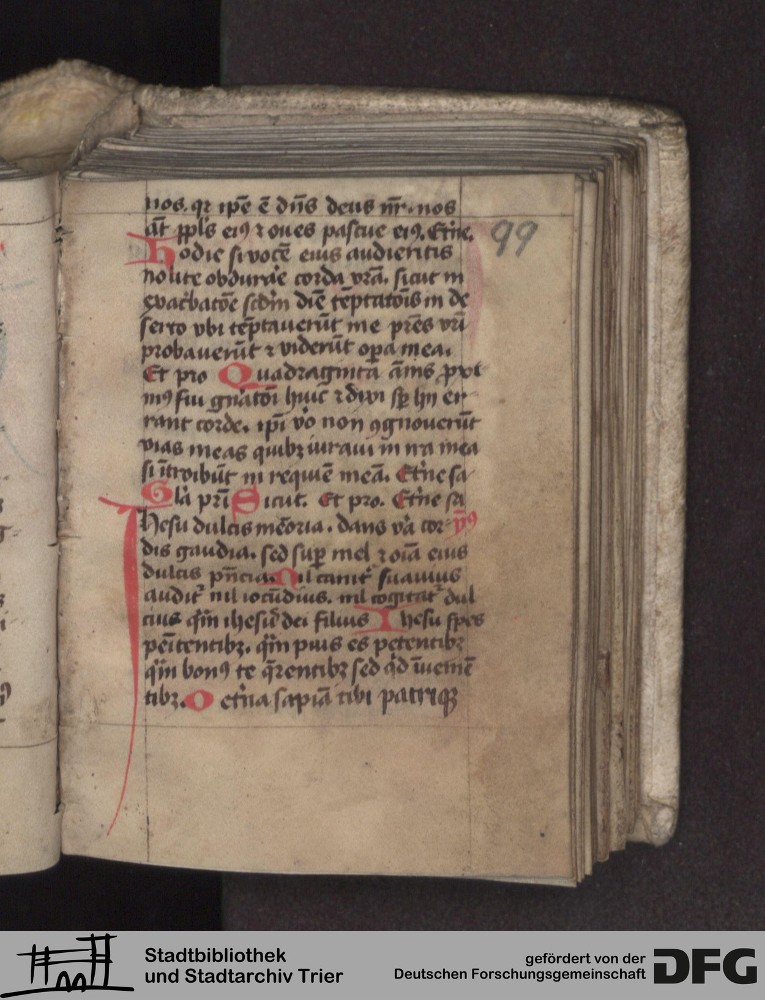 nos. qr ip̄e ē dn̄s deus nr̄. nos
aūt ppl̄s eiꝯ ⁊ oues pascue eiꝯ. Et̄ne.
99
Hodie si vocē eius audieritis
nolite obdurar̄e corda vrā. sicut in
exac̄batōe scdm̄ diē tēptatōis in de
serto vbi tēptauerūt me pr̄es vr̄i
probauerūt ⁊ viderūt oꝑa mea.
Et pro Quadraginta ānis ꝓxi
mꝯ fui gn̄atōi huic ⁊ dixi sp̄ hij er
rant corde. ip̄i vo non ꝯgnouerūt
vias meas quibꝫ iuraui in ira mea
si ītroibūt in requiē meā. Et̄ne sa
Glā pri Sicut. Et pro. Et̄ne sa
Ihesu dulcis mēoria. dans va cor- ymꝯ
dis gaudia. sed suꝑ mel ⁊ oīa eius
dulcis pn̄cia. Nil canit̄ suauius
audit̄ nil iocūdius. nil cogitat̄ dul
cius qm̄ ihesus dei filius Ihesu spes
pēitentibꝫ. qm̄ pius es petentibꝫ
qm̄ bonꝯ te qr̄entibꝫ sed qd īuenīē
tibꝫ. O et̄na sapiā tibi patriqꝫ
Stadtbibliothek
und Stadtarchiv Trier
gefördert von der
Deutschen Forschungsgemeinschaft
DFG